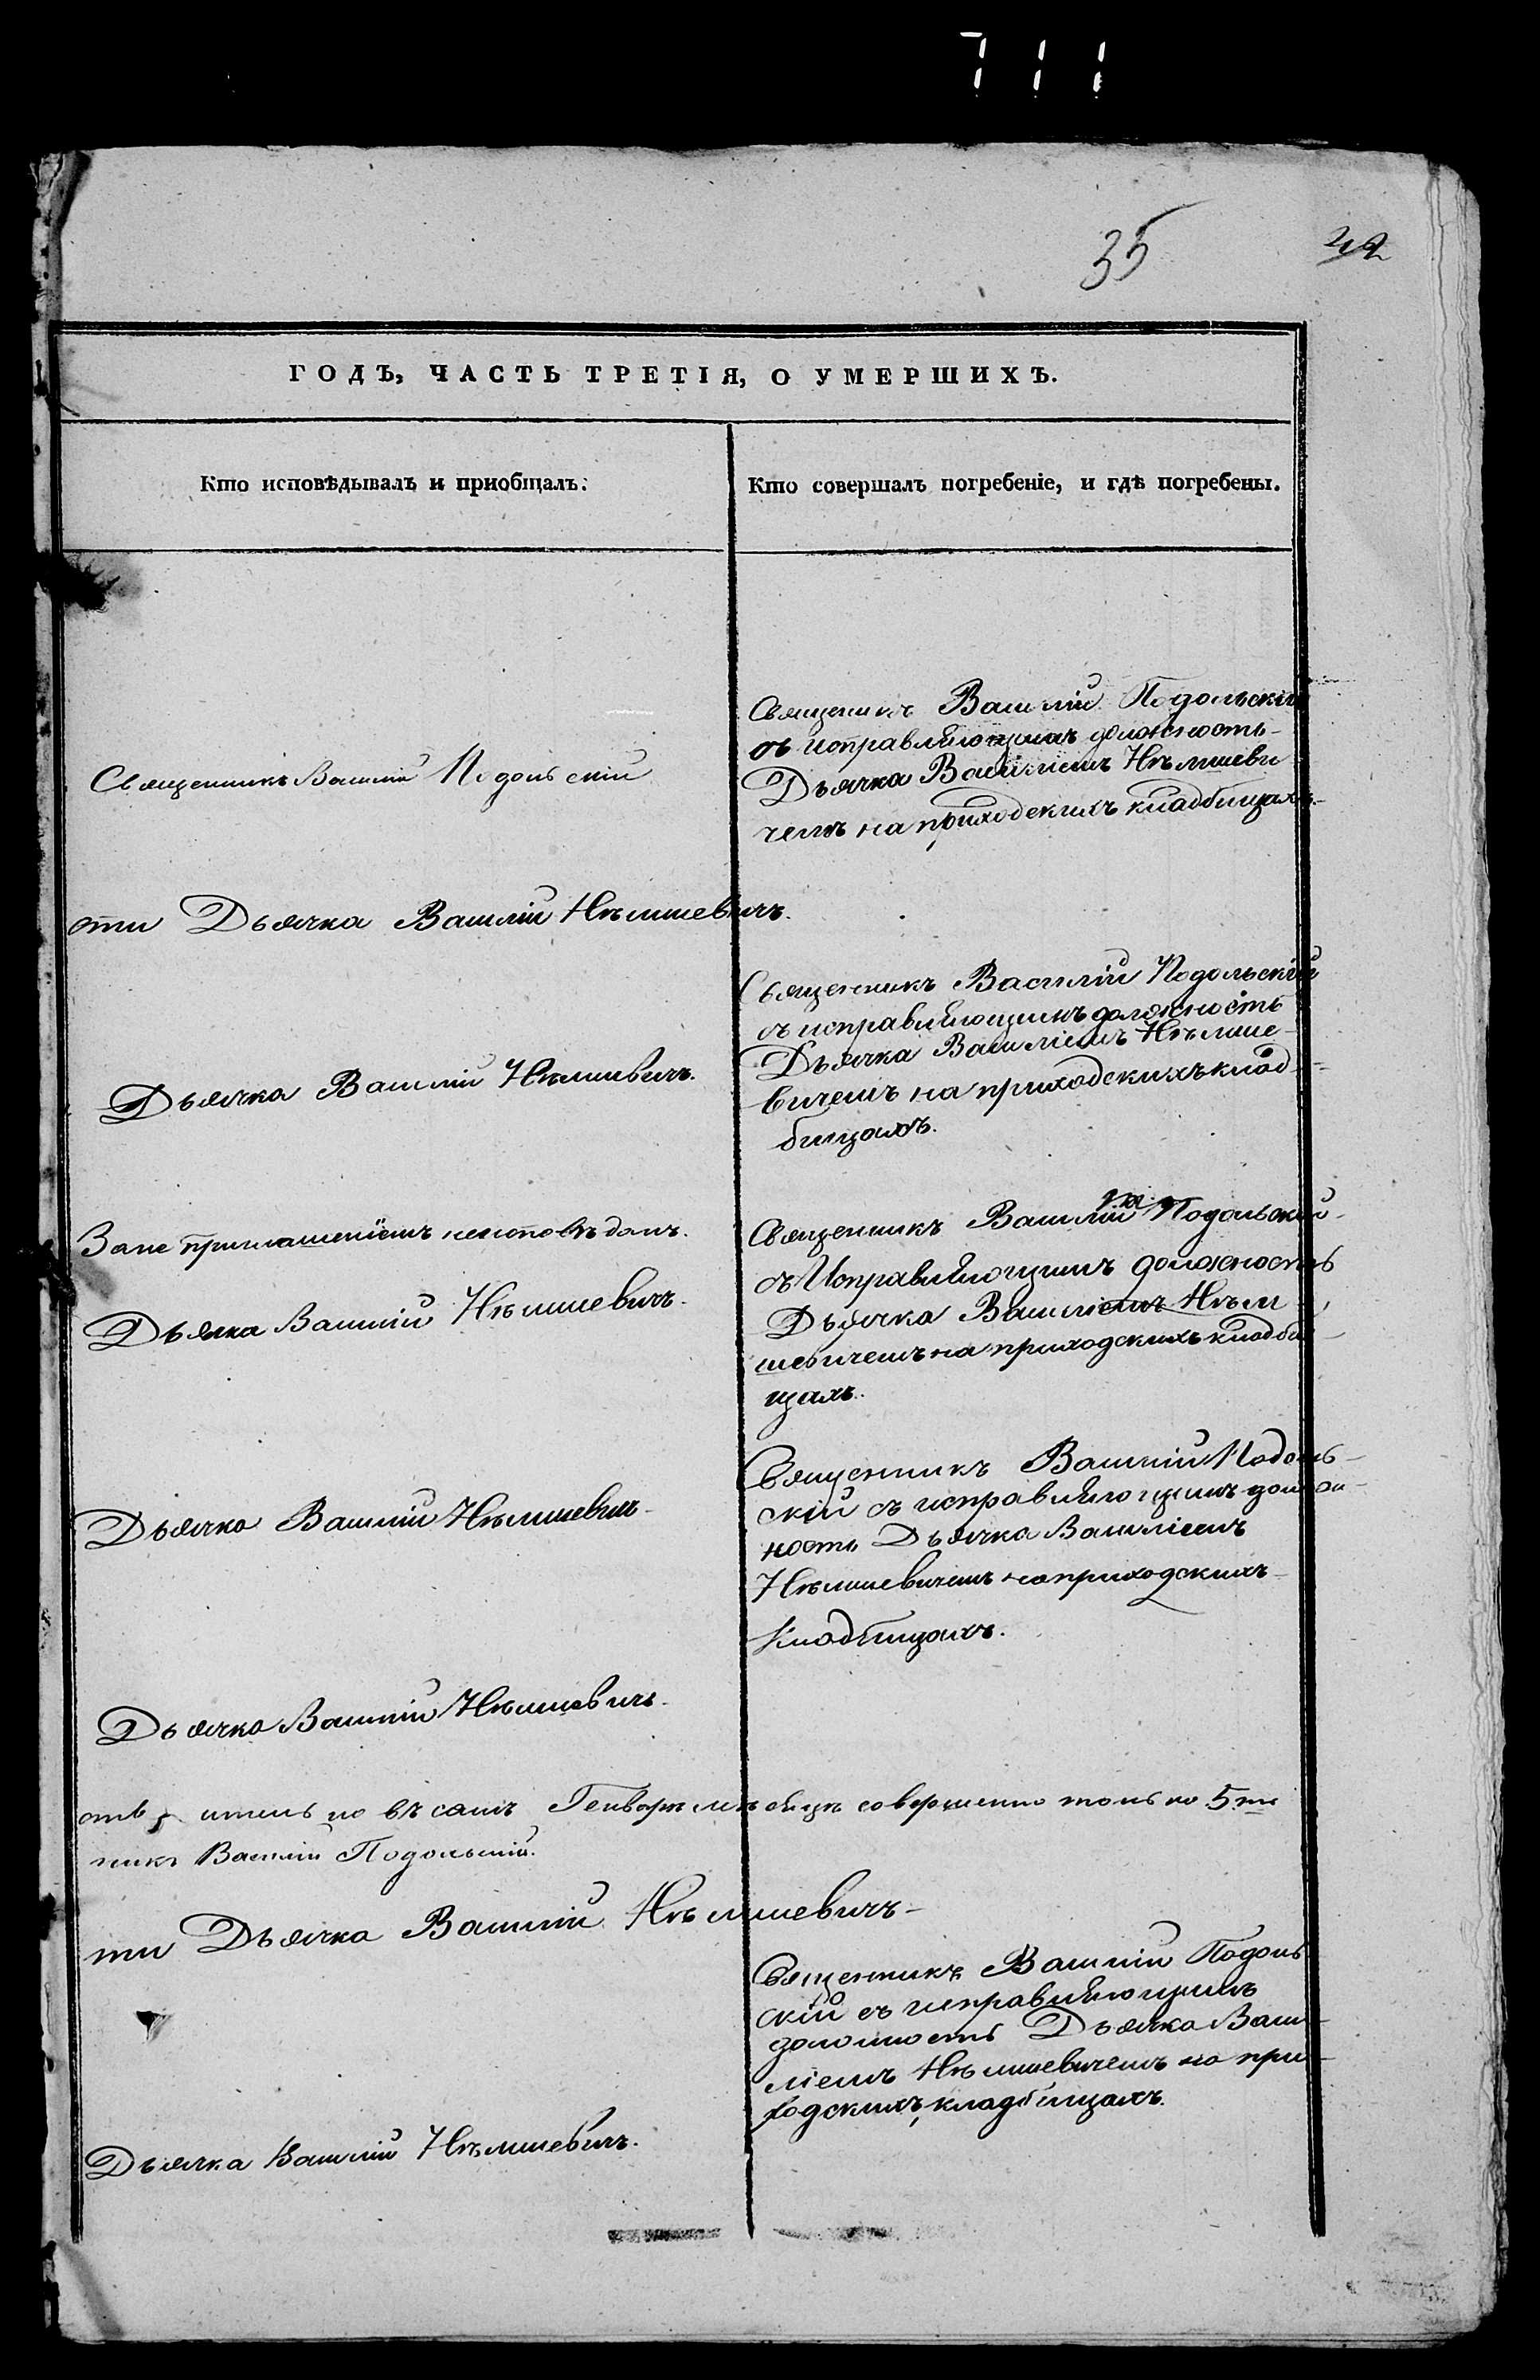 711
35
42
ГОДЪ, ЧАСТЬ ТРЕТІЯ, О УМЕРШИХЪ.
Кто исповѣдывалъ и приобщалъ:
Кто совершалъ погребеніе, и гдѣ погребены.
Священникъ Василій Подольскій
Священникъ Василій Подольскій
съ исправляющимъ должность
Дьячка Василіемъ Нѣмшеви
чемъ на приходскихъ кладбищахъ.
сти Дьячка Василій Нѣмшевичъ.
Дьячка Василій Нѣмшевичъ.
Священникъ Василій Подольскій
съ исправляющимъ должность
Дьячка Василіемъ Нѣмше-
вичемъ на приходскихъ клад-
бищахъ.
Зане приглашеніемъ неисповѣданъ.
Дьячка Василій Нѣмшевичъ.
Священникъ Василій Подольскій
съ Исправляющимъ должность
Дьячка Василіемъ Нѣм
шевичемъ на приходскихъ кладби-
щахъ.
Дьячка Василій Нѣмшевичъ
Священникъ Василій Подоль-
скій съ исправляющимъ долж-
ность Дьячка Василіемъ
Нѣмшевичемъ на приходскихъ
Кладбищахъ.
Дьячка Василій Нѣмшевичъ.
Генварѣ мѣсяцѣ совершенно только 5ть
никъ Василій Подольскій.
ти Дьячка Василій Нѣмшевичъ
Священникъ Василій Подоль
скій съ исправляющимъ
должность Дьячка Васи-
ліемъ Нѣмшевичемъ на при-
ходскихъ кладбищахъ.
Дьячка Василій Нѣмшевичъ.